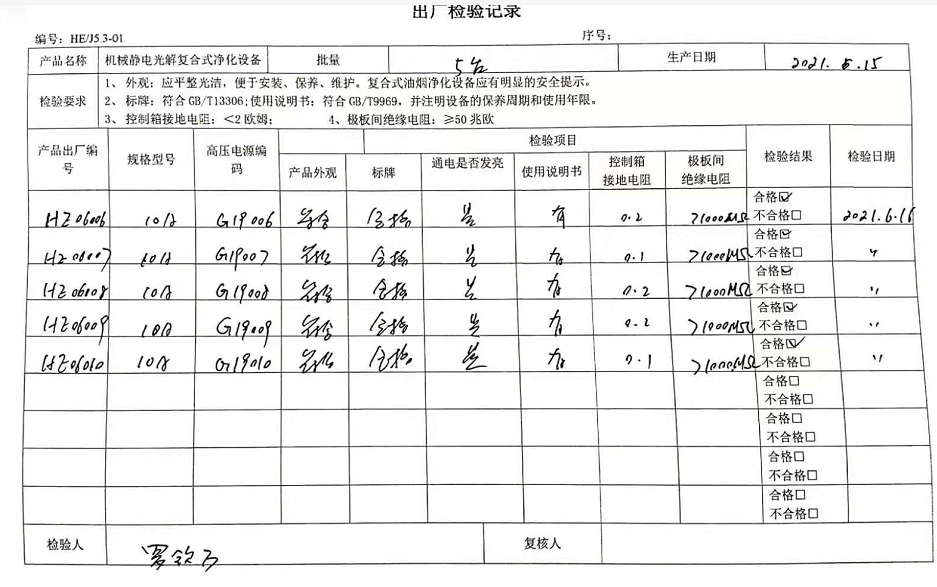 出厂检验记录
编号: HE/J5.3-01 序号:
产品名称 机械静电光解复合式净化设备 批量 5台 生产日期 2021.6.15
检验要求
1、外观: 应平整光洁, 便于安装、保养、维护。复合式油烟净化设备应有明显的安全提示。
2、标牌: 符合GB/T13306;使用说明书: 符合GB/T9969, 并注明设备的保养周期和使用年限。
3、控制箱接地电阻: <2欧姆; 4、极板间绝缘电阻: ≥50兆欧
产品出厂编号 规格型号 高压电源编码 检验项目 检验结果 检验日期
产品外观 标牌 通电是否发亮 使用说明书 控制箱接地电阻 极板间绝缘电阻
HZ06006 10A G19006 符合 合格 是 有 0.2 >1000MΩ 合格☑ 不合格□ 2021.6.16
HZ06007 10A G19007 符合 合格 是 有 0.1 >1000MΩ 合格☑ 不合格□ 〃
HZ06008 10A G19008 符合 合格 是 有 0.2 >1000MΩ 合格☑ 不合格□ 〃
HZ06009 10A G19009 符合 合格 是 有 0.2 >1000MΩ 合格☑ 不合格□ 〃
HZ06010 10A G19010 符合 合格 是 有 0.1 >1000MΩ 合格☑ 不合格□ 〃
合格□
不合格□
合格□
不合格□
合格□
不合格□
合格□
不合格□
检验人 复核人